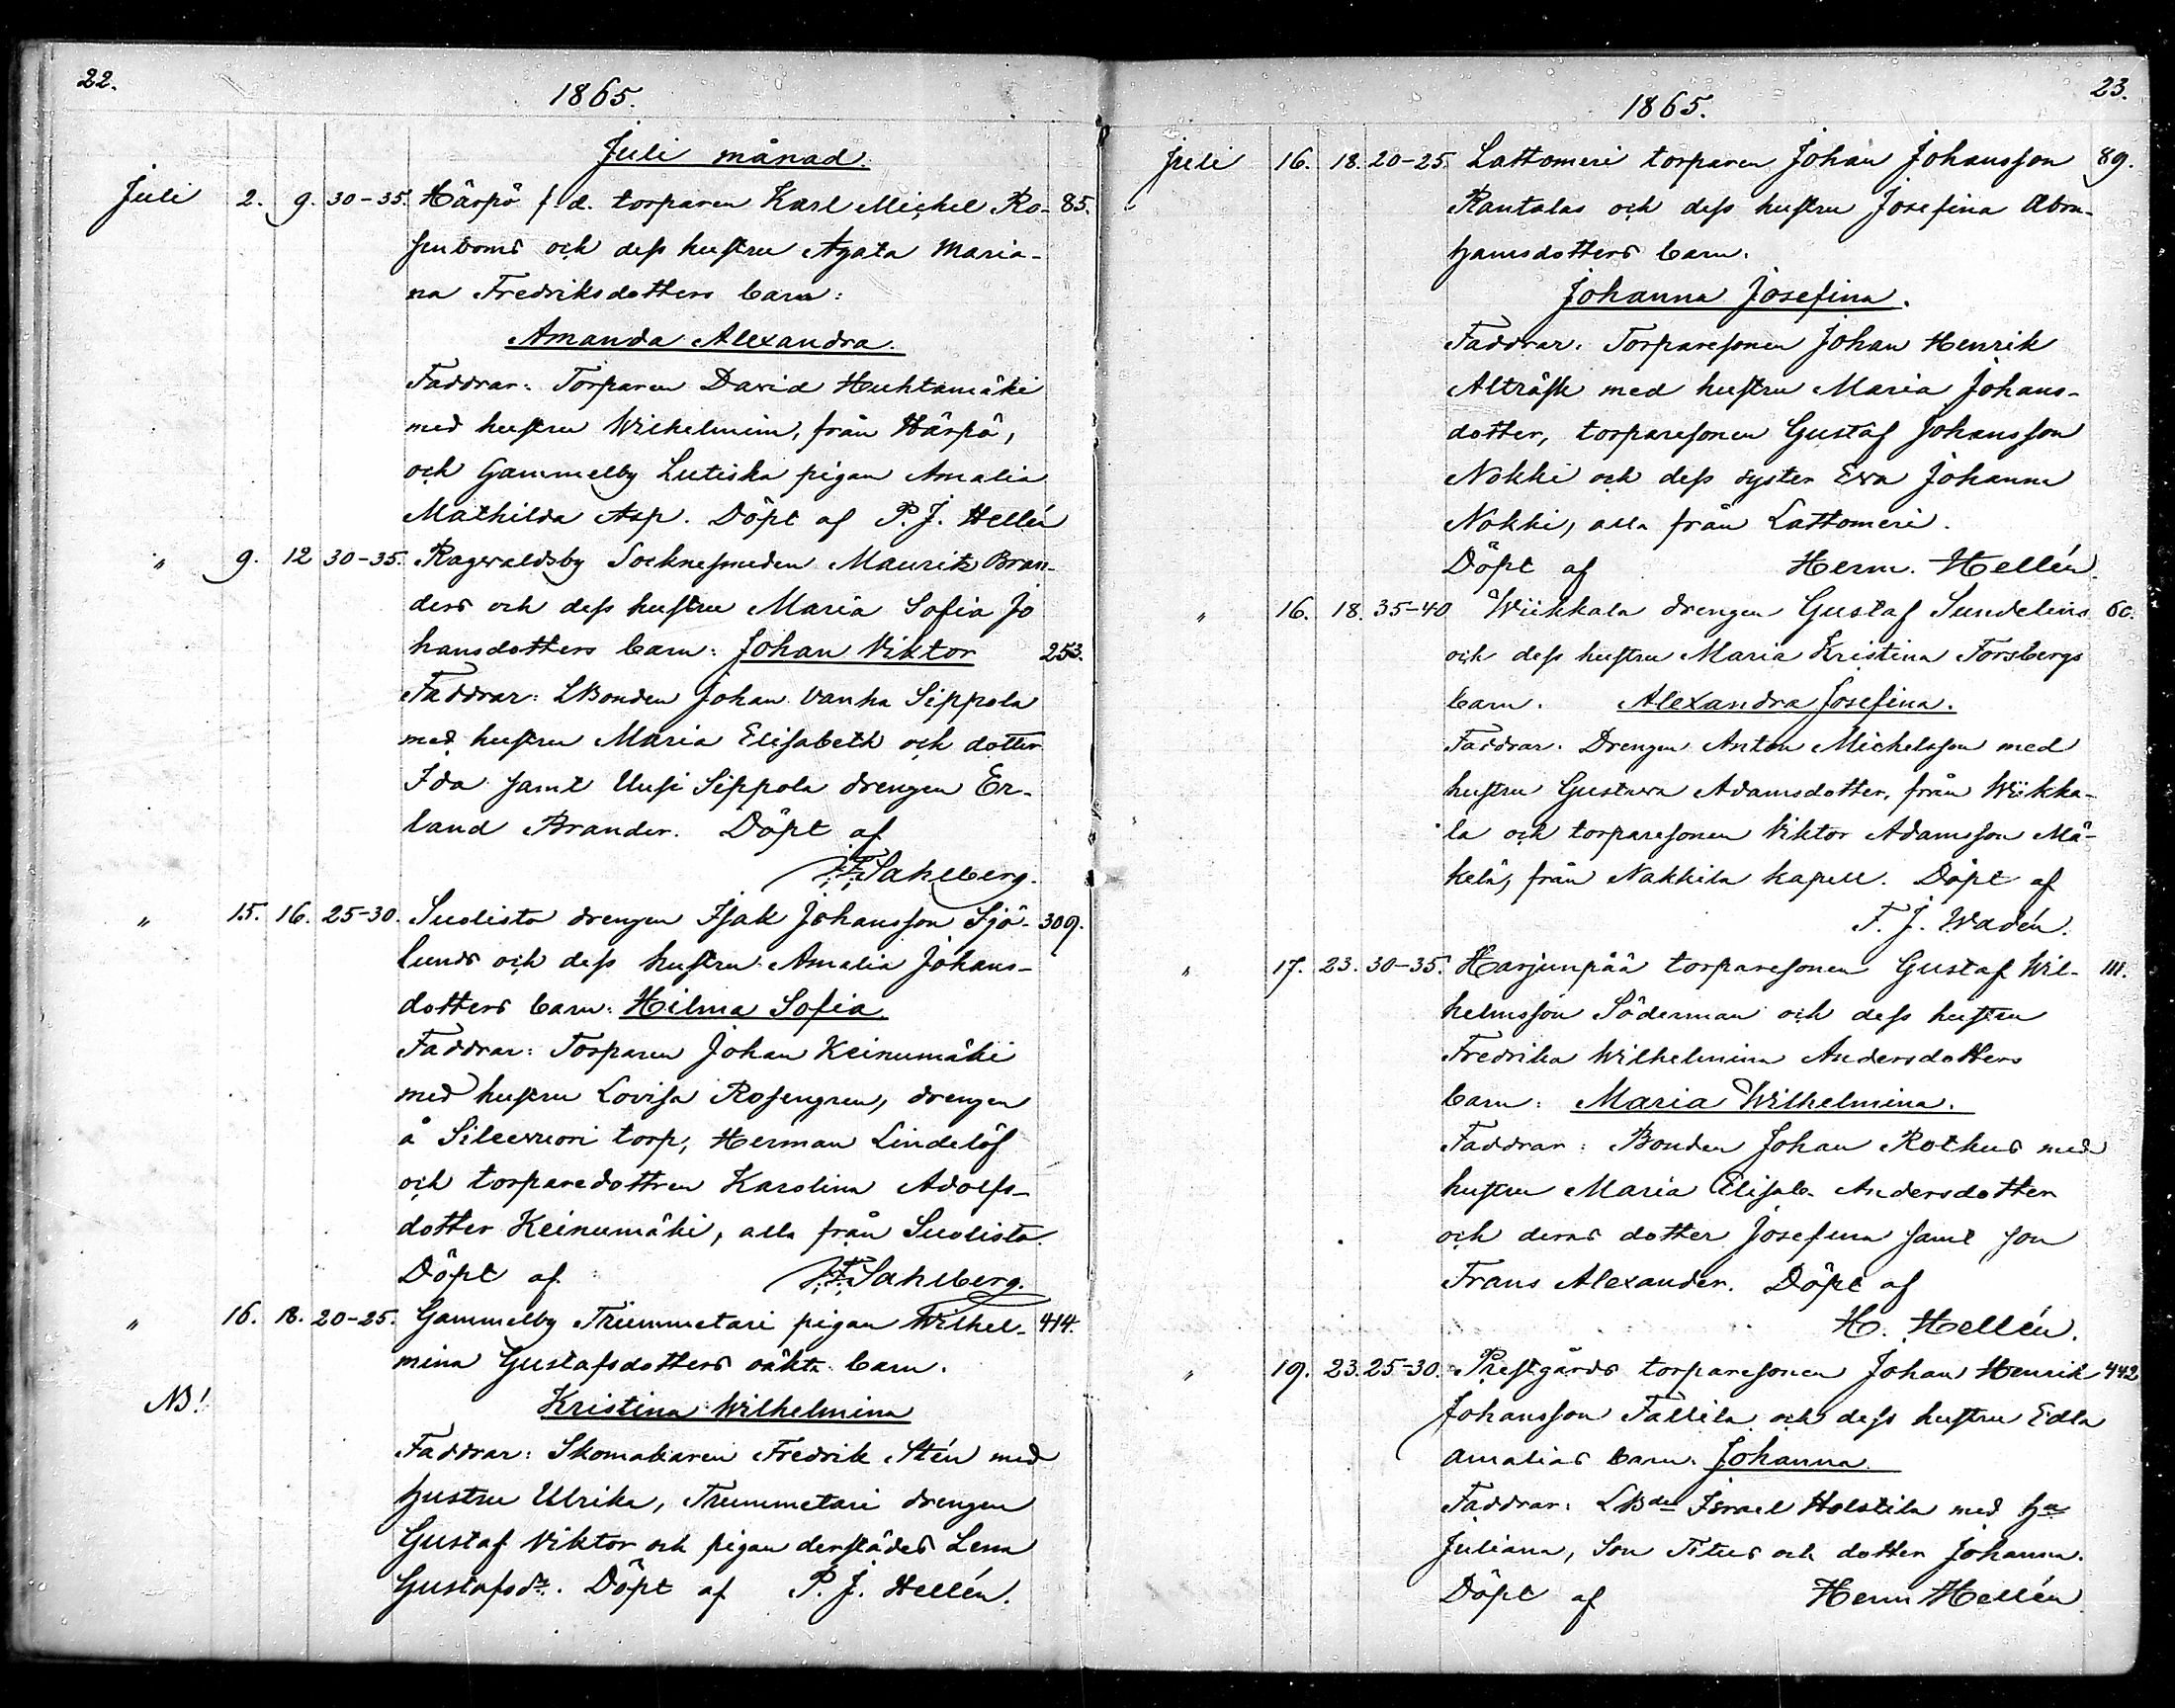 22.
1865.
Juli månad.
Juli 2. 9. 30-35. Härpö f. d. torparen Karl Michel Ro- 85.
senboms och dess hustru Agata Maria-
na Fredriksdotters barn:
Amanda Alexandra.
Faddrar: Torparen David Huhtamäki
med hustru Wilhelmina, från Härpö,
och Gammelby Lutiska pigan Amalia
Mathilda Asp. Döpt af P. J. Hellén
" 9. 12 30-35. Ragvaldsby Socknesmeden Maurits Bran-
ders och dess hustru Maria Sofia Jo
hansdotters barn: Johan Viktor 253.
Faddrar: LBonden Johan Vanha Sippola
med hustru Maria Elisabeth och dotter
Ida samt Uusi Sippola drengen Er-
land Brander. Döpt af
F. Sahlberg.
" 15. 16. 25-30. Suolisto drengen Isak Johansson Sjö- 309.
lunds och dess hustru Amalia Johans-
dotters barn: Hilma Sofia.
Faddrar: Torparen Johan Keinumäki
med hustru Lovisa Rosengren, drengen
å torp, Herman Lindelöf
och torparedottren Karolina Adolfs-
dotter Keinumäki, alla från Suolisto.
Döpt af F. Sahlberg.
" 16. 18. 20-25. Gammelby Trummetari pigan Wilhel- 414.
mina Gustafsdotters oäkta barn.
NB! Kristina Wilhelmina
Faddrar: Skomakaren Fredrik Stén med
hustru Ulrika, Trummetari drengen
Gustaf Viktor och pigan derstädes Lena
Gustafsdr. Döpt af P. J. Hellén.
23.
1865.
Juli 16. 18. 20-25. Lattomeri torparen Johan Johansson 89.
Rantalas och dess hustru Josefina Abra-
hamsdotters barn.
Johanna Josefina.
Faddrar: Torparesonen Johan Henrik
Alträsk med hustru Maria Johans-
dotter, torparesonen Gustaf Johansson
Nokki och dess syster Eva Johanna
Nokki, alla från Lattomeri.
Döpt af Herm. Hellén.
" 16. 18. 35-40 Wiikkala drengen Gustaf Sundelins 60.
och dess hustru Maria Kristina Forsbergs
barn. Alexandra Josefina.
Faddrar: Drengen Anton Michelsson med
hustru Gustava Adamsdotter, från Wiikka-
la och torparesonen Viktor Adamsson Mä-
kelä, från Nakkila kapell. Döpt af
F. J. Wadén.
" 17. 23. 30-35. Harjunpää torparesonen Gustaf Wil- 111.
helmsson Söderman och dess hustru
Fredrika Wilhelmina Andersdotters
barn: Maria Wilhelmina.
Faddrar: Bonden Johan Rothus med
hustru Maria Elisab. Andersdotter
och deras dotter Josefina samt son
Frans Alexander. Döpt af
H. Hellén.
" 19. 23. 25-30. Prestgårds torparesonen Johan Henrik 442
Johansson Tallila och dess hustru Edla
Amalias barn: Johanna.
Faddrar: LBden Israel Holstila med ha
Juliana, Son Titus och dotter Johanna.
Döpt af Herm Hellén